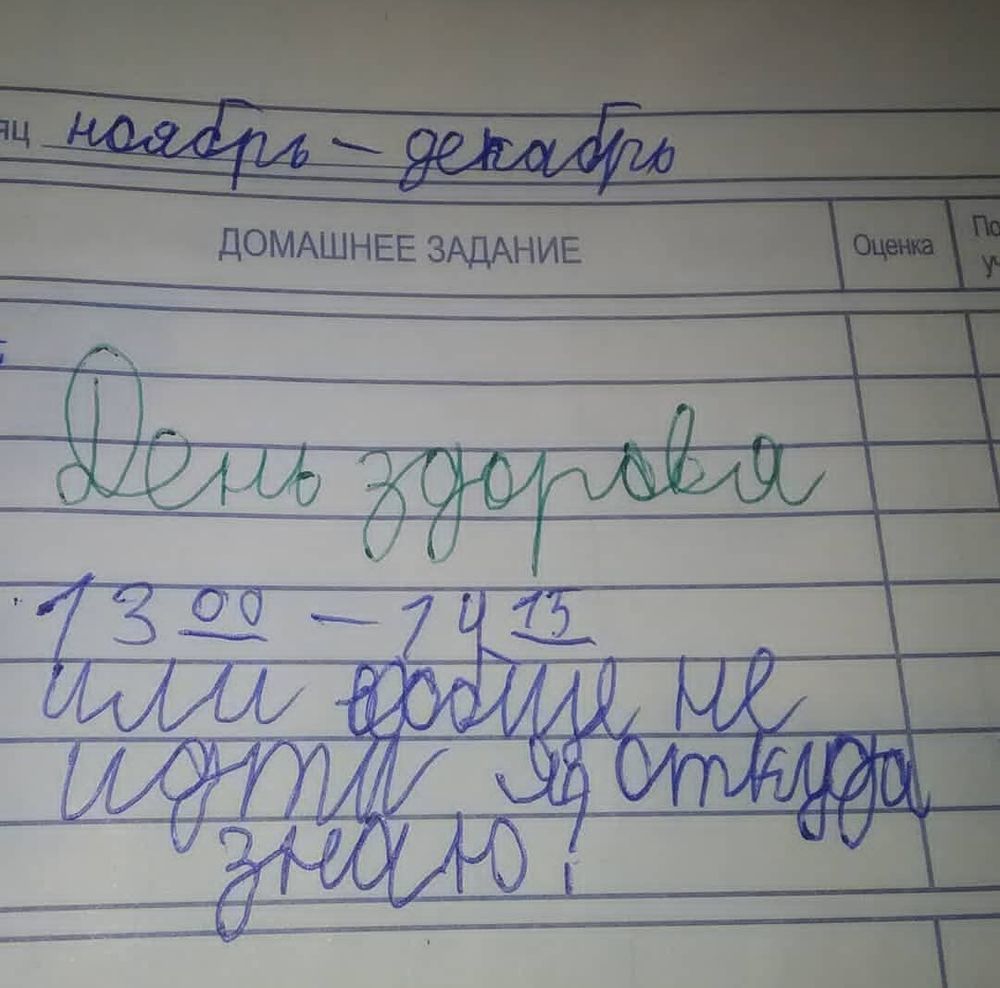 яц ноябрь – декабрь
ДОМАШНЕЕ ЗАДАНИЕ Оценка По
уч
День здоровя
13 00 – 14 15
или вообще не
идти я откуда
знаю!